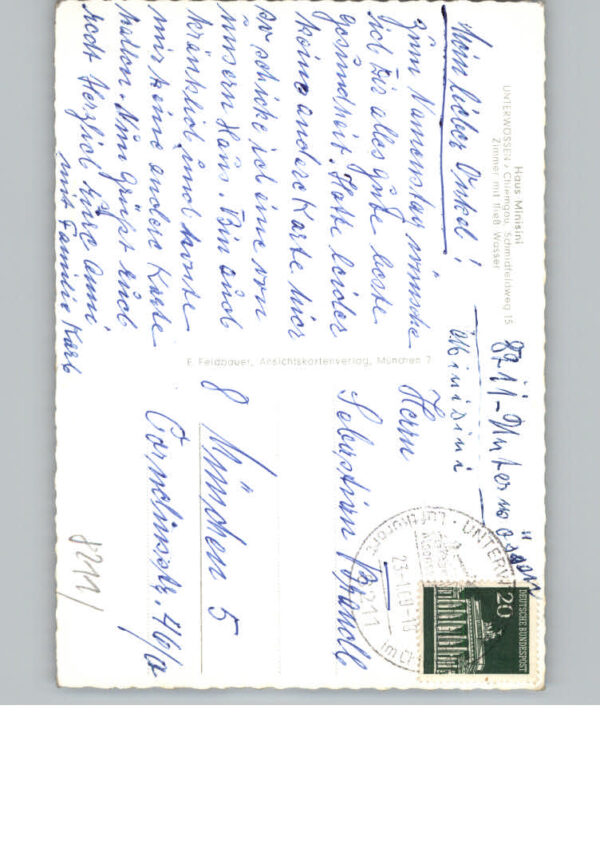 Haus Minisini
UNTERWÖSSEN / Chiemgau, Schmidfeldweg 15
Zimmer mit fließ. Wasser
Mein lieber Onkel!
Zum Namenstag wünsche
ich Dir alles gute beste
gesundheit. Hatte leider
keine andere Karte hier
so schicke ich eine von
unsern Haus. Bin auch
kränklich und konnte
mir keine andere Karte
holen. Nun Grüßt Euch
recht Herzlich Eure Anni
mit Familie Karb
E. Feldbauer, Ansichtskartenverlag, München 2
8211-Unterwössen
Minisini
Herrn
Sebastian Brandl
8 München 5
Cornelinsstr. 46/0
8211/
20
DEUTSCHE BUNDESPOST
UNTERW
Luftkurort
8211
im Ch